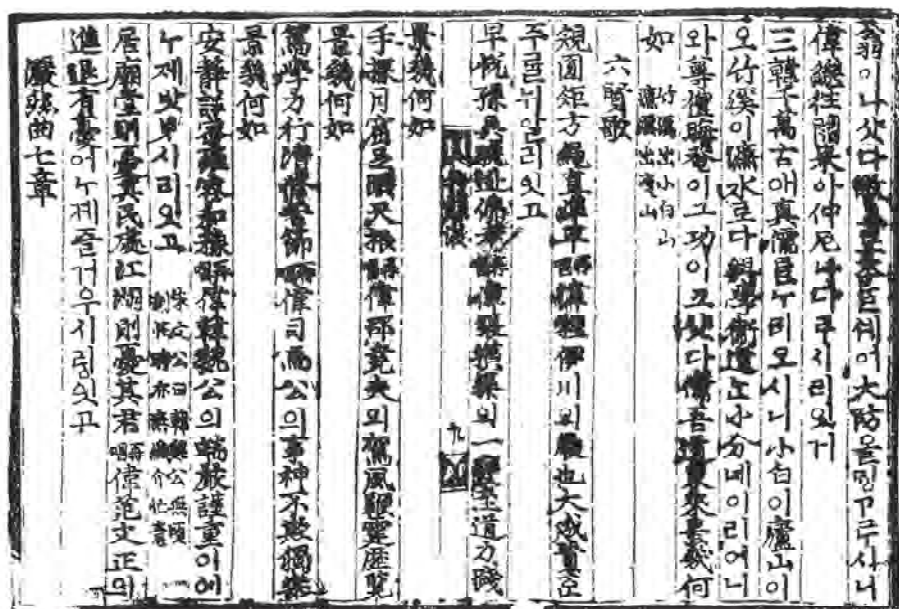 翁이나샷다 를쎠어大防을밍ᄀᆞᄅᆞ시니
偉繼往開來아仲尼나다ᄅᆞ시리잇가
三韓千萬古애真儒를ᄂᆞ리오시니小白이廬山이
오竹溪이濂水로다興學衛道ᄂᆞᆫ小分네이리어니
와尊禮晦菴이그功이크샷다偉吾道東來景幾何
如 竹溪出小白山 濂溪出廬山
六賢歌
規圓矩方繩直準平再唱 伊川의 也大成
주를뉘알리잇고
早悅孫吳晩逃佛老再唱偉 의一變至道力踐
九
景幾何如
手探月窟足躡天根再唱偉邵堯夫의駕風鞭霆歷覽
景幾何如
篤學力行淸修苦節再唱偉司馬公의事神不欺獨樂
景幾何如
安靜詳密雍容和豫再唱偉韓魏公의端嚴謹重이에
누제밧부시리오고 朱文公曰韓魏公無頃刻
居廟堂則憂其民處江湖則憂其君再唱偉范文正의
進退有憂어누제즐거우시리잇고
儼然曲七章